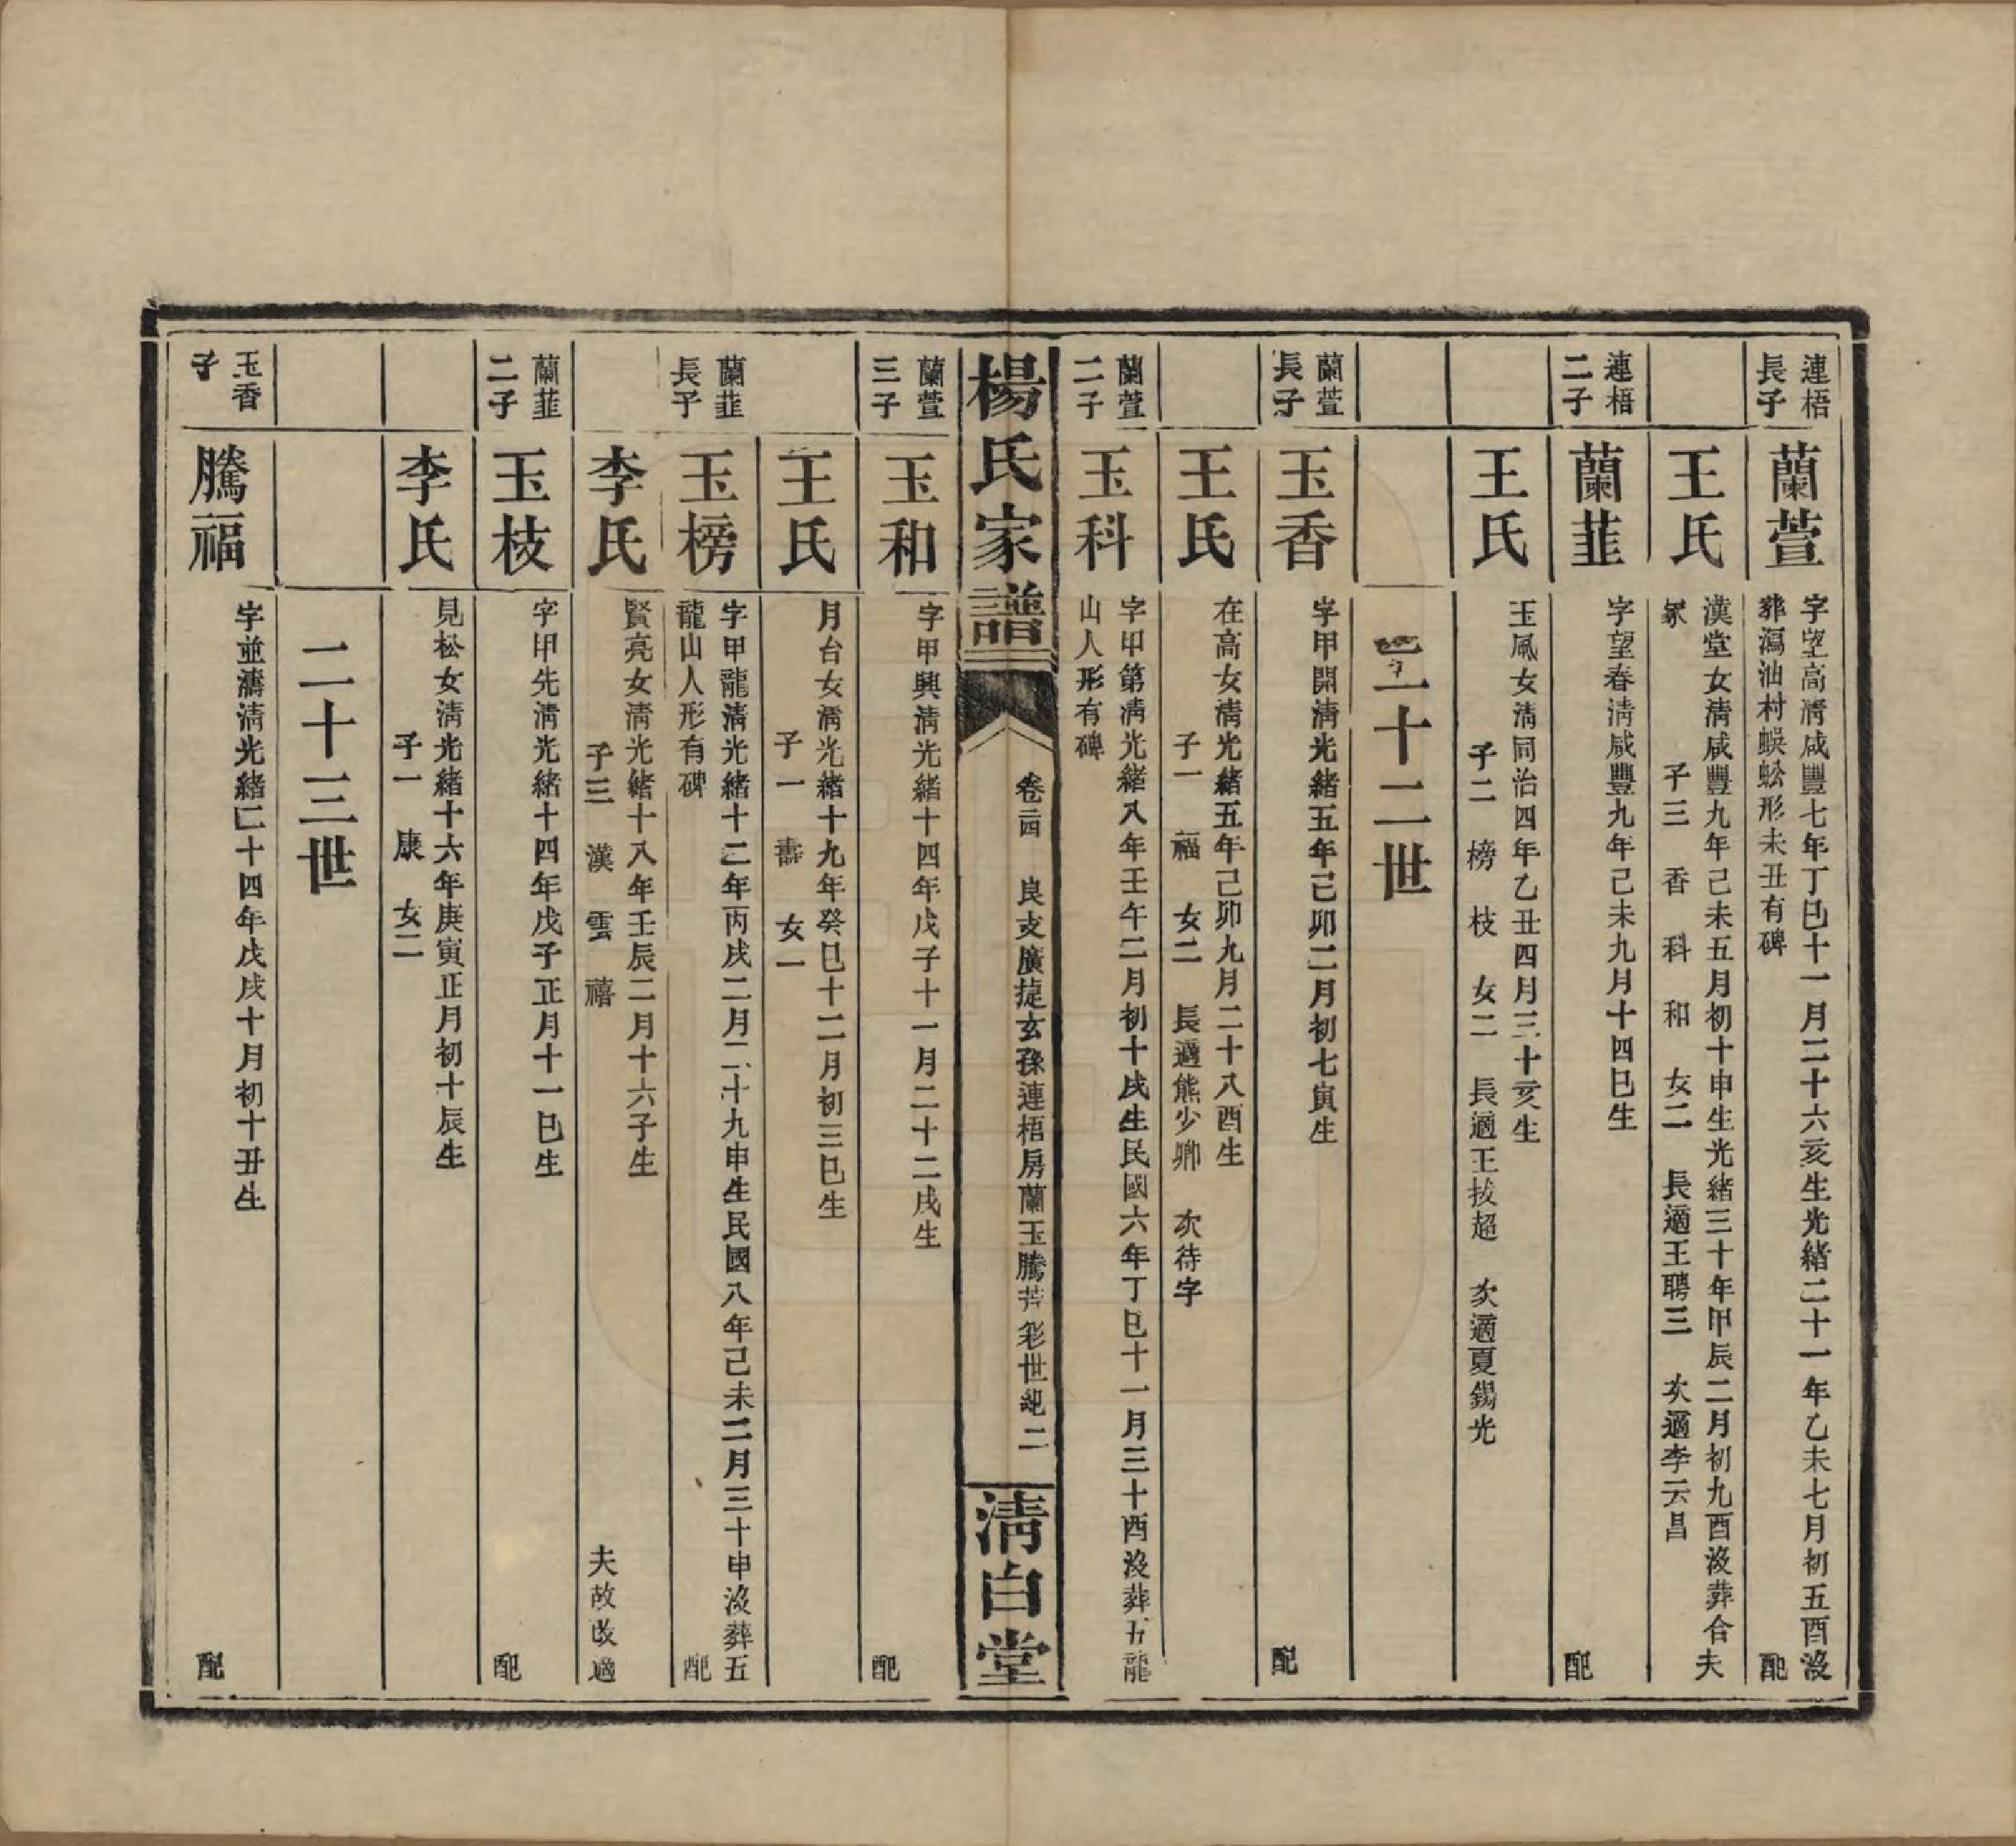 連梧
長子
蘭萱
字望高淸咸豐七年丁巳十一月二十六亥生光緒二十一年乙未七月初五酉沒
葬瀉油村蜈蚣形未丑有碑 配
王氏
漢堂女淸咸豐九年己未五月初十申生光緒三十年甲辰二月初九酉沒葬合夫
冢 子三 香 科 和 女二 長適王聘三 次適李云昌
連梧
二子
蘭韮
字望春淸咸豐九年己未九月十四巳生
配
王氏
玉風女淸同治四年乙丑四月三十亥生
子二 榜 枝 女二 長適王拔超 次適夏錫光
二十二世
蘭萱
長子
玉香
字甲開淸光緒五年己卯二月初七寅生
配
王氏
在高女淸光緒五年己卯九月二十八酉生
子一 福 女二 長適熊少卿 次待字
蘭萱
二子
玉科
字甲第淸光緒八年壬午二月初十戌生民國六年丁巳十一月三十酉沒葬五龍
山人形有碑
楊氏家譜
卷三四 良支廣捷玄孫連梧房蘭玉騰芳彩世紀 二
淸白堂
蘭萱
三子
玉和
字甲興淸光緒十四年戊子十一月二十二戌生
配
王氏
月台女淸光緒十九年癸巳十二月初三巳生
子一 壽 女一
蘭韮
長子
玉榜
字甲龍淸光緒十二年丙戌二月二十九申生民國八年己未二月三十申沒葬五
龍山人形有碑 配
李氏
賢亮女淸光緒十八年壬辰二月十六子生
子三 漢 雲 禧 夫故改適
蘭韮
二子
玉枝
字甲先淸光緒十四年戊子正月十一巳生
配
李氏
見松女淸光緒十六年庚寅正月初十辰生
子一 康 女二
二十三世
玉香
子
騰福
字並濤淸光緒二十四年戊戌十月初十丑生
配